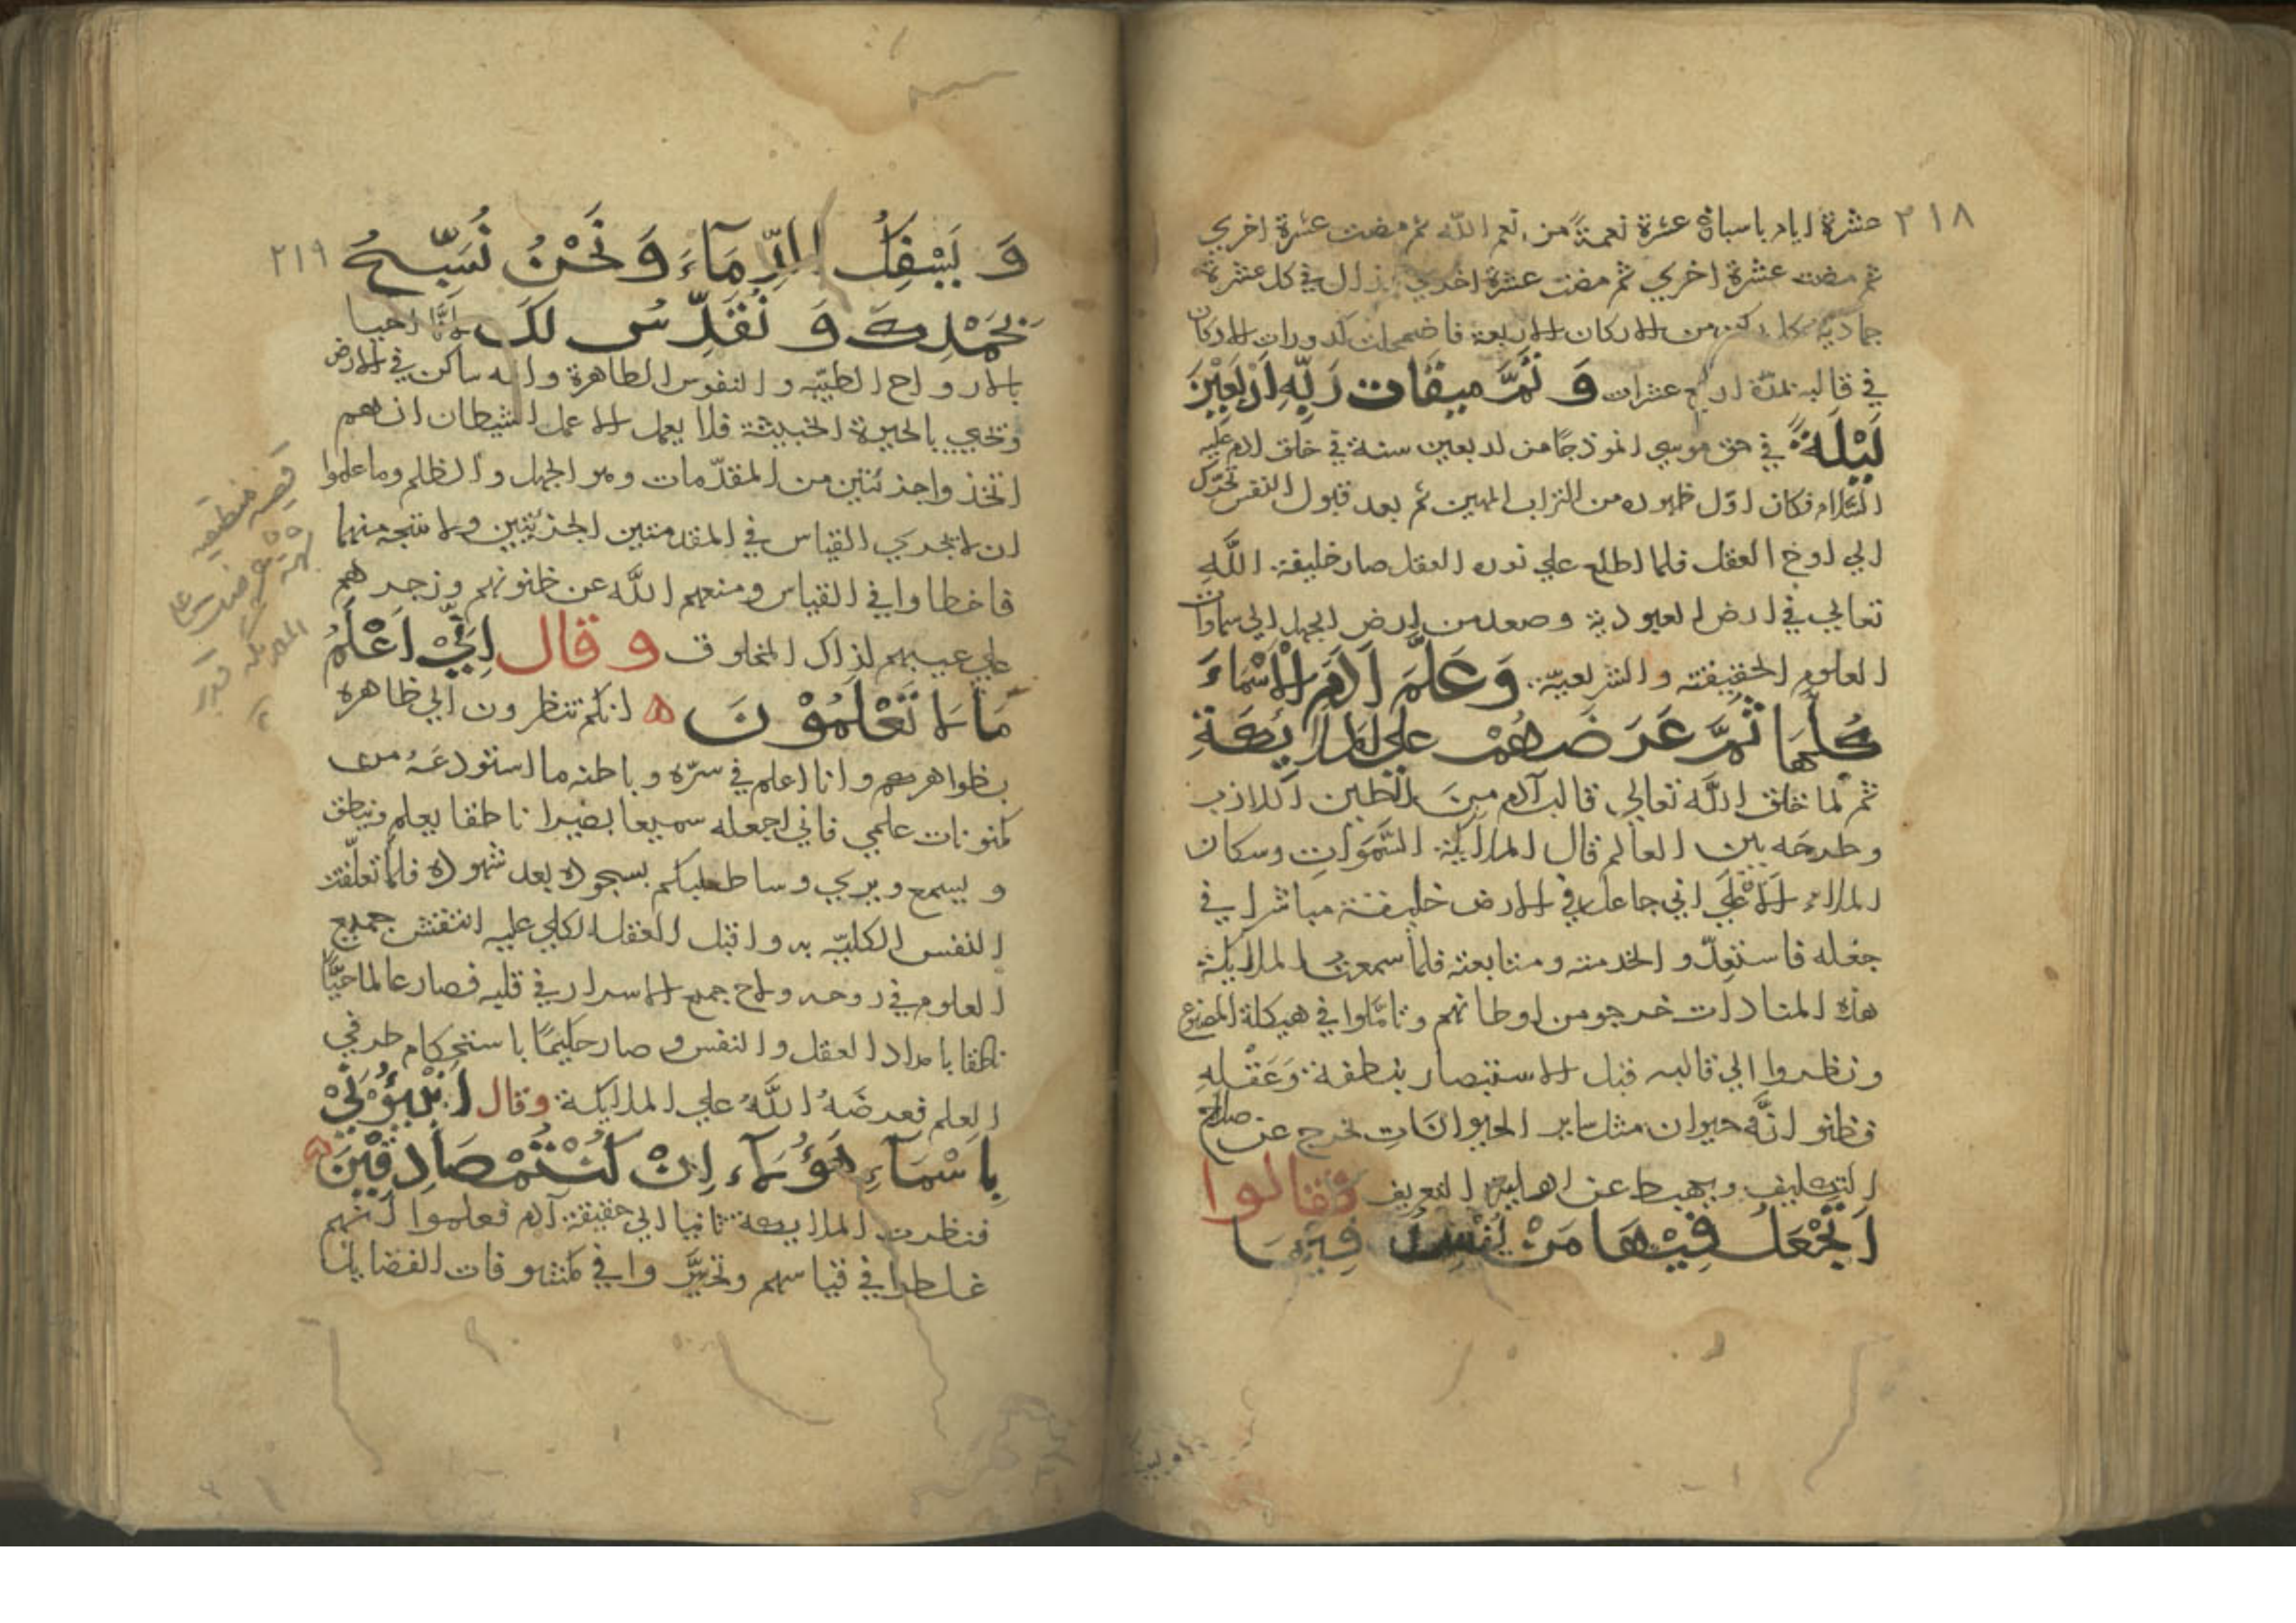 ٢١٨
عشرة ايام باسباغ عشرة نعمة من نعم الله ثم مضت عشرة اخري
ثم مضت عشرة اخري ثم مضت عشرة اخري في كل عشرة
من الاركان الاربعة فاضمحلت كدورات الاركان
في قالبه بمدة اربع عشرات وَ تَمَّ ميقات رَبِّهِ اَرْبَعِيْنَ
لَيْلَةً في حق موسي انموذجًا من اربعين سنة في خلق ادم عليه
السّلام فكان اوّل ظهوره من التراب المهين ثم بعد قبول النفس تحرّك
الي اوج العقل فلما اطلع علي نور العقل صار خليفة اللّٰهِ
تعالي في ارض العبودية وصعد من ارض الجهل الي سماوات
العلوم الحقيقته والشريعيّة وَعَلَّمَ اٰدَمَ الْاَسْمَاءَ
كُلَّهَا ثُمَّ عَرَضَهُمْ علي الملايكةِ
ثم لما خلق اللّٰه تعالي قالب آدم مِنَ الطين اللازب
وطرحَه بين العالم قال الملايكة السَّمَوات وسكان
الملاء الاَعْلَي اني جاعل في الارض خليفة مباشرا في
جعله فاستعِدّوا لخدمته ومتابعته فلما سمعت الملايكة
هذه المنادات خرجو من اوطانهم وتامّلوا في هيكلة المصنوع
ونظروا الي قالبه قبل الاستبصار بنطفة وَعَقْلِهِ
فظنو انّه حيوان مثل ساير الحيوانَات تخرج عن صلاح
التكليف ويهبط عن اهلية التعريف فقالوا
اَتَجْعَلُ فِيْهَا مَنْ يُفْسِدُ فِيْهَا
٢١٩
وَ يَسْفِكُ الدِّمَآءَ وَ نَحْنُ نُسَبِّحُ
بِحَمْدِكَ وَ نُقَدِّسُ لَكَ احيا
بالارواح الطيبّه والنفوس الطاهرة وانه ساكن في الارض
وتحيي بالحيرة الخبيثة فلا يعمل الا عمل الشيطان انهم
اتخذ واجذئتين من المقدّمات وهو الجهل والظلم وما علموا
ان لا يجري القياس في المقدمتين الجزئيتين ولا نتجه منهما
فاخطاوا في القياس ومنعهم اللّٰه عن ظنونهم وزجرهم
علي عيبهم لذاك المخلوق وقال اِنّيْ اَعْلَمُ
مَا لَا تَعْلَمُوْنَ ه انكم تنظرون الي ظاهره
بظواهرهم وانا اعلم في سرّه وباطنه ما استودعَهُ من
مكنونات علمي فاني اجعله سميعا بصيرا ناطقا يعلم وينطق
ويسمع ويري بسجوده بعد شهوده فلما تعلّقت
النفس الكليّه به واقبل العقل الكلي عليه انتقش جميع
العلوم في روحه ولاح جميع الاسرار في قلبه فصار عالما حيًّا
ناطقا بامداد العقل والنفس و صار حكيمًا باستحكام طرفي
العلم فعرضَهُ اللّٰهُ علي الملايكة وقال اَنْبِئُوْنيْ
بِاَسْمَآءِ هٰؤُلَآءِ اِنْ كُنْتُمْ صَادِقِيْنَ
فنظرت الملايكة ثانيا الي حقيقة آدم فعلموا انّهم
غلطوا في قياسهم وتحيَّروا في مكشوفات الفضايل